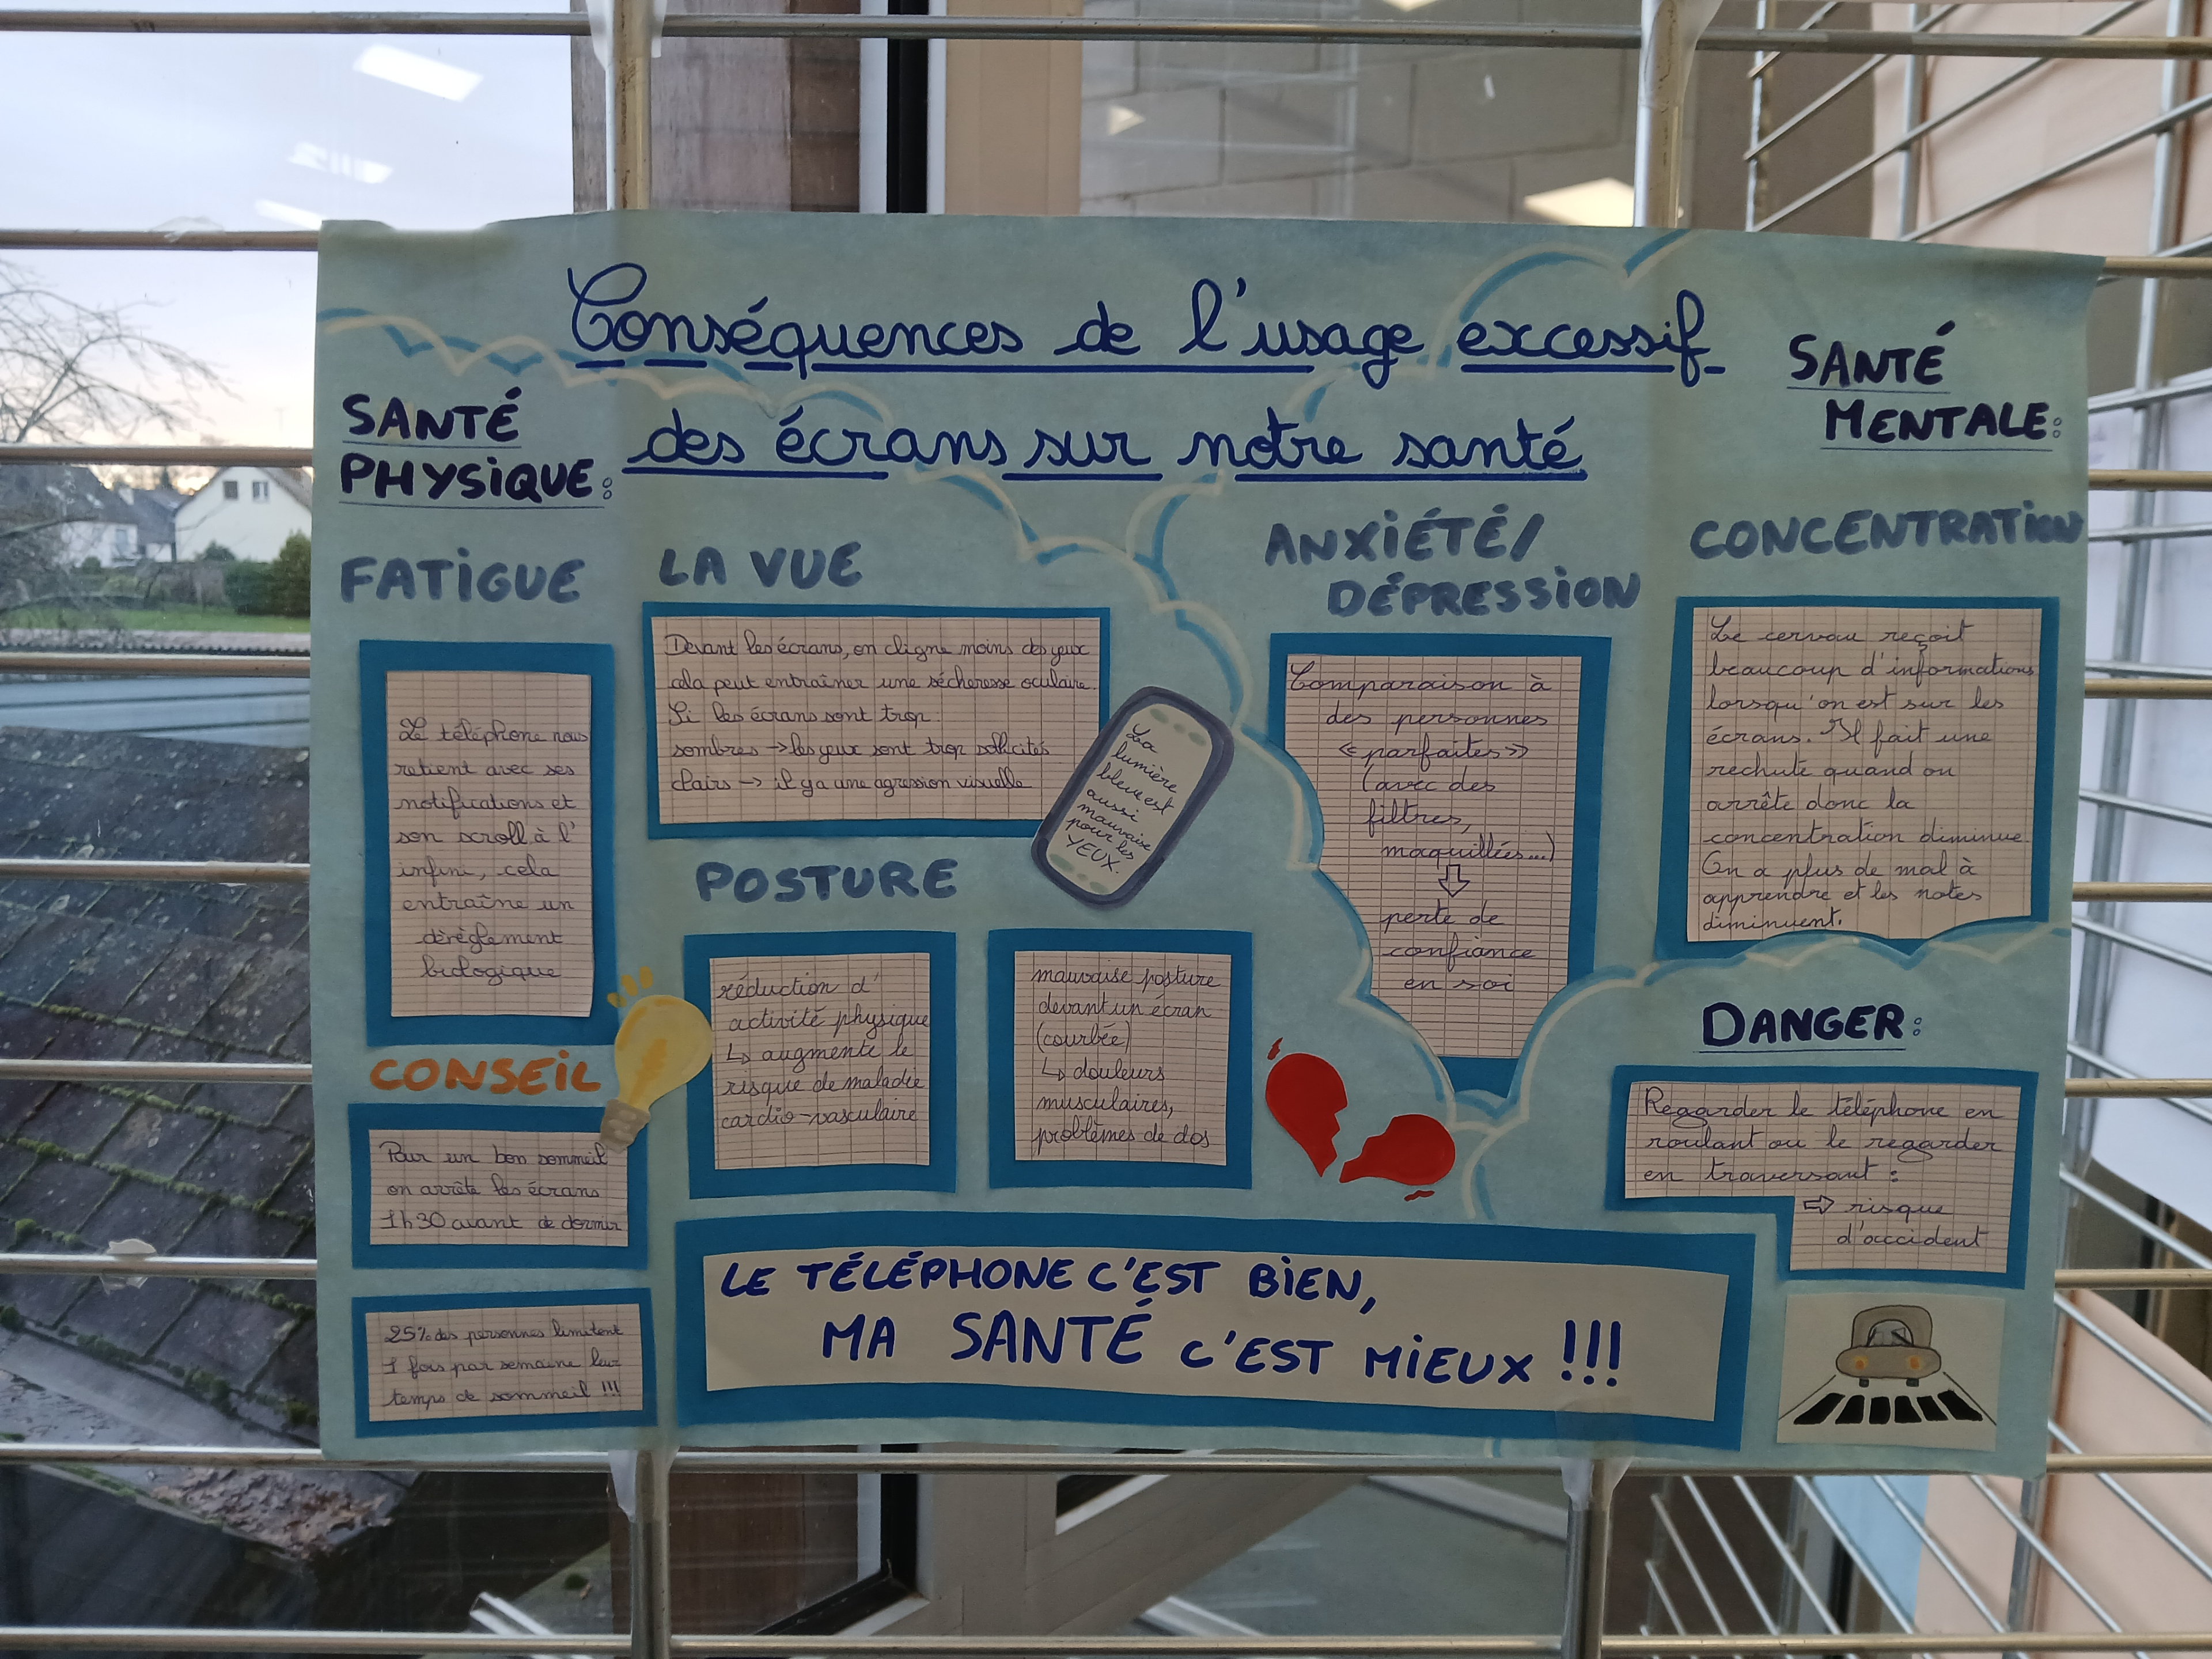 Conséquences de l'usage excessif
des écrans sur notre santé
SANTÉ
PHYSIQUE:
FATIGUE
Le téléphone nous
retient avec ses
notifications et
son scroll à l'
infini, cela
entraîne un
dérèglement
biologique
CONSEIL
Pour un bon sommeil
on arrête les écrans
1h30 avant de dormir
25% des personnes limitent
1 fois par semaine leur
temps de sommeil !!!
LA VUE
Devant les écrans, on cligne moins des yeux
cela peut entraîner une sécheresse oculaire.
Si les écrans sont trop:
sombres → les yeux sont trop sollicités
clairs → il y a une agression visuelle
La
lumière
bleue est
aussi
mauvaise
pour les
YEUX.
POSTURE
réduction d'
activité physique
↳ augmente le
risque de maladie
cardio-vasculaire
mauvaise posture
devant un écran
(courbée)
↳ douleurs
musculaires,
problèmes de dos
SANTÉ
MENTALE:
ANXIÉTÉ/
DÉPRESSION
Comparaison à
des personnes
«parfaites»
(avec des
filtres,
maquillées...)
⇩
perte de
confiance
en soi
CONCENTRATION
Le cerveau reçoit
beaucoup d'informations
lorsqu'on est sur les
écrans. Il fait une
rechute quand on
arrête donc la
concentration diminue.
On a plus de mal à
apprendre et les notes
diminuent.
DANGER:
Regarder le téléphone en
roulant ou le regarder
en traversant:
⇨ risque
d'accident
LE TÉLÉPHONE C'EST BIEN,
MA SANTÉ C'EST MIEUX !!!